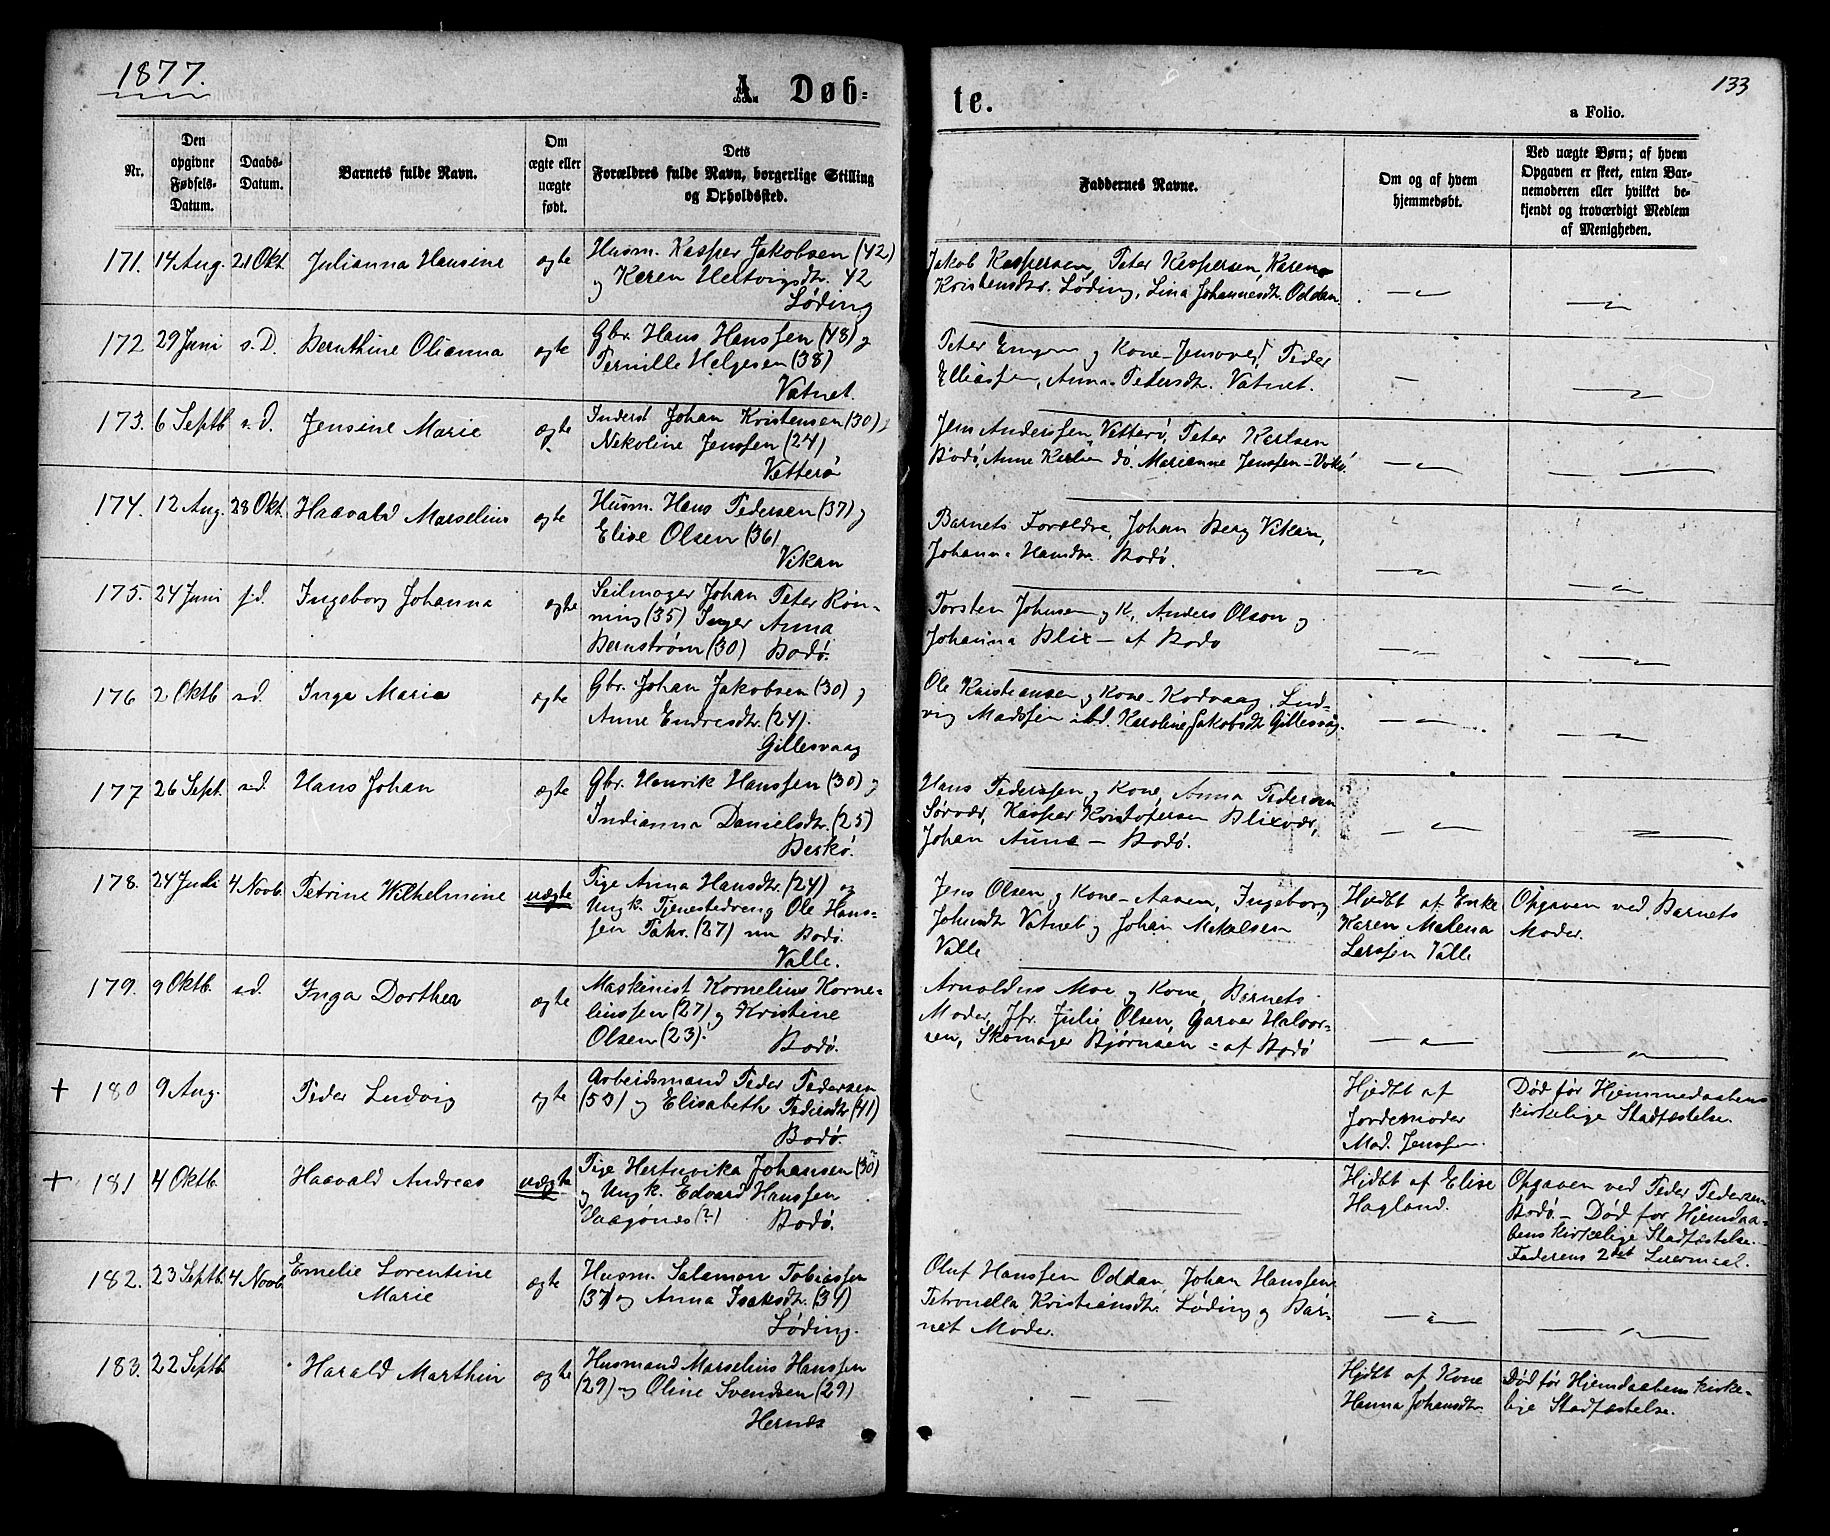 1877.
A. Døb=
te.
133
a Folio.
Nr.
Den
opgivne
Fødsels-
Datum.
Daabs-
Datum.
Barnets fulde Navn.
Om
ægte eller
uægte
født.
Dets
Forældres fulde Navn, borgerlige Stilling
og Opholdssted.
Faddernes Navne.
Om og af hvem
hjemmedøbt.
Ved uægte Børn; af hvem
Opgaven er skeet, enten Bar-
nemoderen eller hvilket be-
kjendt og troværdigt Medlem
af Menigheden.
171. 14 Aug. 21 Okt. Julianna Hansine ægte
Husm. Kasper Jakobsen (42)
og Karen Heltvigsdtr. 42
Løding
Jakob Kaspersen, Peter Kaspersen, Karen
Kristensdtr. Løding, Lina Johannesdtr. Oddan
172 29 Juni s.D. Bernthine Olianna ægte
Gbr. Hans Hanssen (48) og
Pernille Helgesen (38)
Vatnet.
Peter og Kone Peder
Elliassen, Anna Pedersdtr. Vatnet.
173. 6 Septb s.d. Jensine Marie ægte
Inderst Johan Kristensen (30) og
Nikoline Jenssen (24)
Vetterø
Jens Anderssen Vetterø, Peter Karlsen
Bodø, Anne Karlsen do. Marianne Jenssen
174. 12 Aug. 28 Okt. Haavald Marselius ægte
Husm. Hans Pedersen (37) og
Elise Olsen (36)
Vikan
Barnets Forældre, Johan Berg Vikan,
Johanna Hansdtr. Bodø.
175. 24 Juni s.d. Ingeborg Johanna ægte
Seilmager Johan Peter Røn-
ning (35) Inger Anna
Bernstrøm (30) Bodø.
Torsten Johnsen og K., Anders Olson og
Johanna Blix – af Bodø
176 2 Oktb s.d. Inga Maria ægte
Gbr. Johan Jakobsen (30) og
Anne Endresdtr. (24).
Gillesvaag
Ole Kristiansen og Kone Kodvaag, Lud-
vig Madssen ibd. Karoline Jakobsdtr Gillesvåg.
177 26 Sept. s.d. Hans Johan ægte
Gbr. Henrik Hanssen (30) og
Indianna Danielsdtr. (25)
Beskø.
Hans Pederssen og Kone, Anna Pedersen
Sørvær, Kasper Kristofersen Blixvær,
Johan Aune – Bodø.
178. 24 Juli 4 Novb. Petrine Wilhelmine uægte
Pige Anna Hansdtr. (24) og
Ungk. Tjenestedreng Ole Hans-
sen (27) nu Bodø.
Valle.
Jens Olsen og Kone – Aasen, Ingeborg
Johnsdtr Vatnet og Johan Mikalsen
Valle
Hjdbt af Enke
Karen Malena
Larssen Valle
Opgaven ved Barnets
Moder.
179. 9 Oktb. s.d. Inga Dorthea ægte
Maskinist Kornelius Korne-
liussen (27) og Kristine
Olsen (23).
Bodø.
Arnoldus Moe og Kone, Barnets
Moder, Jfr. Julie Olsen, Garver Halvor-
sen, Skomager Bjørnsen – af Bodø
+ 180 9 Aug. Peder Ludvig ægte
Arbeidsmand Peder Pedersen
(50) og Elisabeth Pedersdtr (41)
Bodø.
Hjdbt af
Jordemoder
Mad. Jenssen.
Død før Hjemmedaabens
kirkelige Stadfæstelse.
+ 181 4 Oktb. Haavald Andreas uægte
Pige Hertuvika Johansen (30)
og Ungk. Edvard Hanssen
Saagønes (?) Bodø.
Hjdbt af Elise
Hagland.
Opgaven ved Peder Pedersen
Bodø. – Død før Hjemdaa-
bens kirkelige Stadfæstelse.
Faderens 2det Leiermaal.
182. 23 Septb. 4 Novb. Emelie Lorentine
Marie ægte
Husm. Salamon Tobiassen
(37) og Anna Isaksdtr. (34)
Løding.
Oluf Hanssen Oddan, Johan Hanssen
Petronella Kristiansdtr. Løding og Bar-
net Moder.
183. 22 Septb. Harald Marthin ægte
Husmand Marselius Hanssen
(29) og Oline Svendsen (29)
Hernes
Hjdbt af Kone
Hanna Johansdtr.
Død før Hjemdaabens kirke-
lige Stadfæstelse.